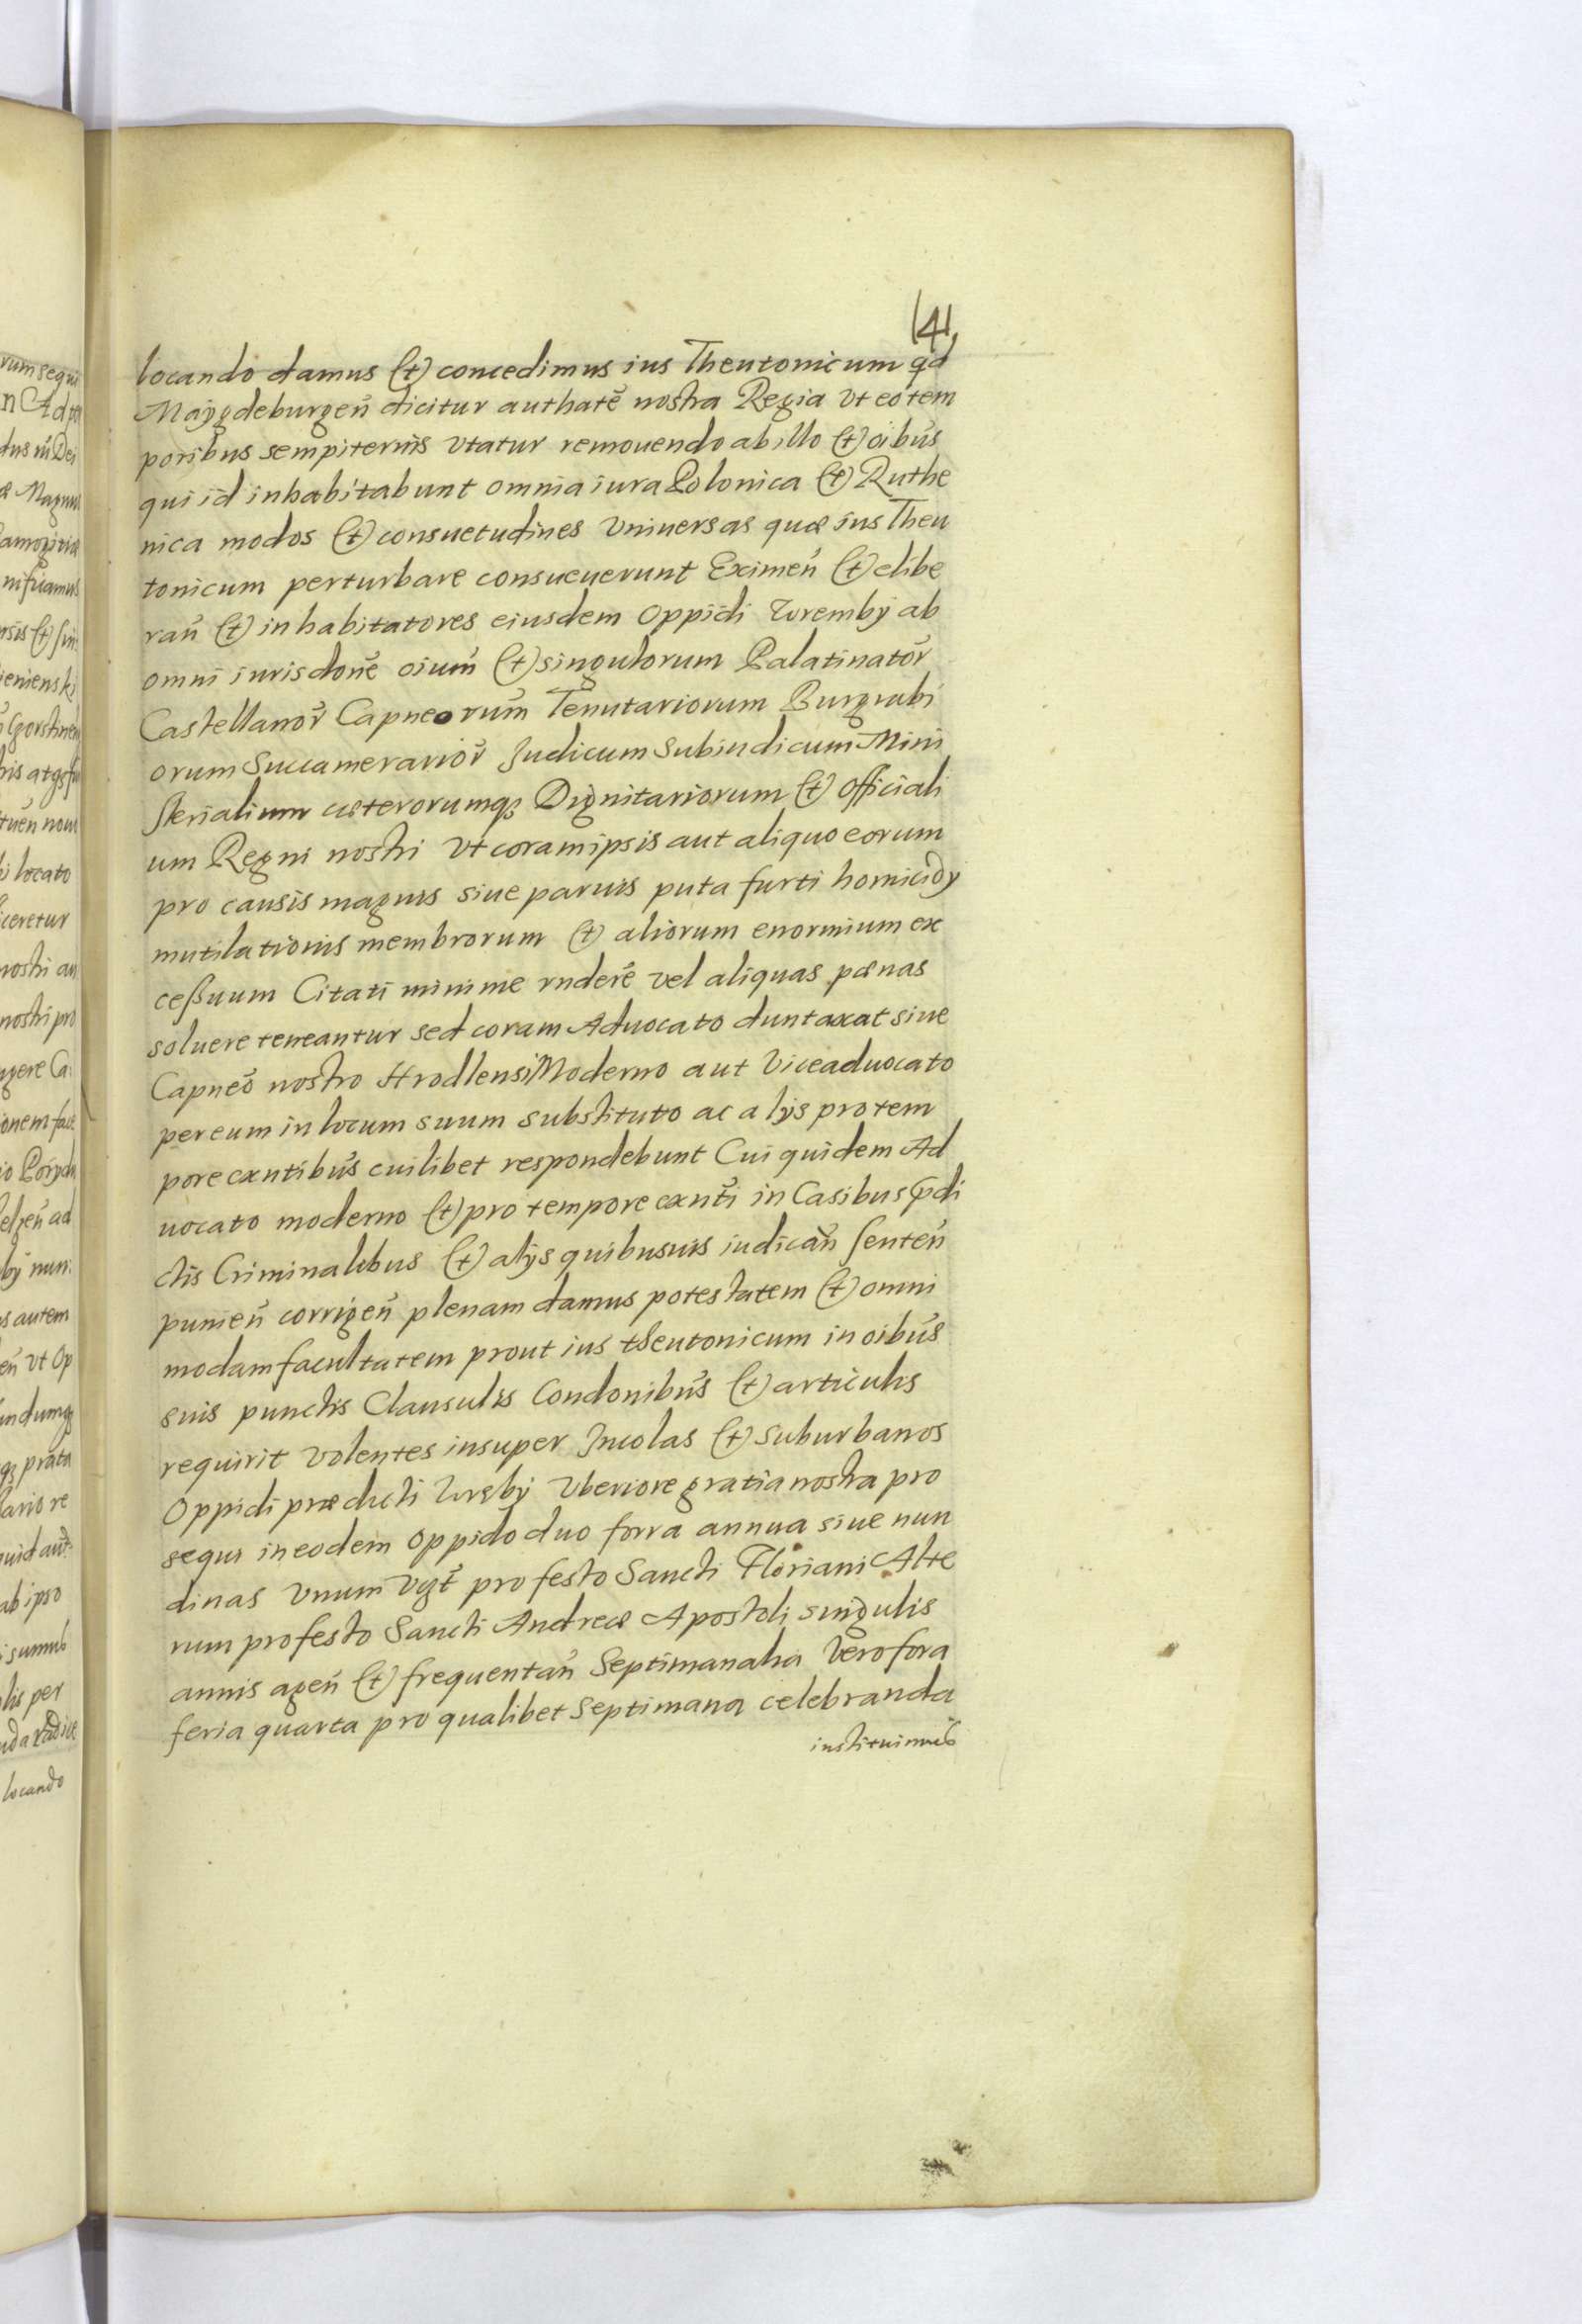 141
locando damus (et) concedimus ius Theutonicum qd
Maÿgdeburgeñ dicitur authatē nostra Regia vt eo tem
poribus sempiternis vtatur remouendo ab illo (et) oibus
qui id inhabitabunt omnia iura Polonica (et) Ruthe
nica modos (et) consuetudines vniuersas quæ ius Theu
tonicum perturbare consueuerunt Eximeñ (et) elibe
rañ (et) inhabitatores eiusdem oppidi Turembÿ ab
omni iurisdonē oium (et) singulorum Palatinator̄
Castellanor̄ Capneorum Tenutariorum Burgrabi
orum Succamerarior̄ Judicum Subiudicum Mini
sterialium cæterorumq₃ Dignitariorum (et) officiali
um Regni nostri vt coram ipsis aut aliquo eorum
pro causis magnis siue paruis puta furti homicidÿ
mutilationis membrorum (et) aliorum enormium ex
ceßuum Citati minime rnderē vel aliquas pœnas
soluere teneantur sed coram Aduocato duntaxat siue
Capneō nostro Hrodlensi Moderno aut Viceaduocato
per eum in locum suum substituto ac alÿs pro tem
pore exñtibus cuilibet respondebunt Cui quidem Ad
uocato moderno (et) pro tempore exñti in Casibus p̄di
ctis Criminalibus (et) alÿs quibusuis iudicañ senteñ
punieñ corrigeñ plenam damus potestatem (et) omni
modam facultatem prout ius theutonicum in oibus
suis punctis Clausulis Condonibus (et) articulis
requirit volentes insuper Incolas (et) suburbanos
Oppidi prædicti vberiore gratia nostra pro
sequi in eodem oppido duo forra annua siue nun
dinas vnum vzt̄ pro festo Sancti Floriani Alte
rum pro festo Sancti Andreæ Apostoli singulis
annis ageñ (et) frequentañ Septimanalia vero fora
feria quarta pro qualibet septimana celebranda
instituimus
rum sequi
locato
iceretur
nostri au
nostri pro
s autem
ab ipso
lis per
locando